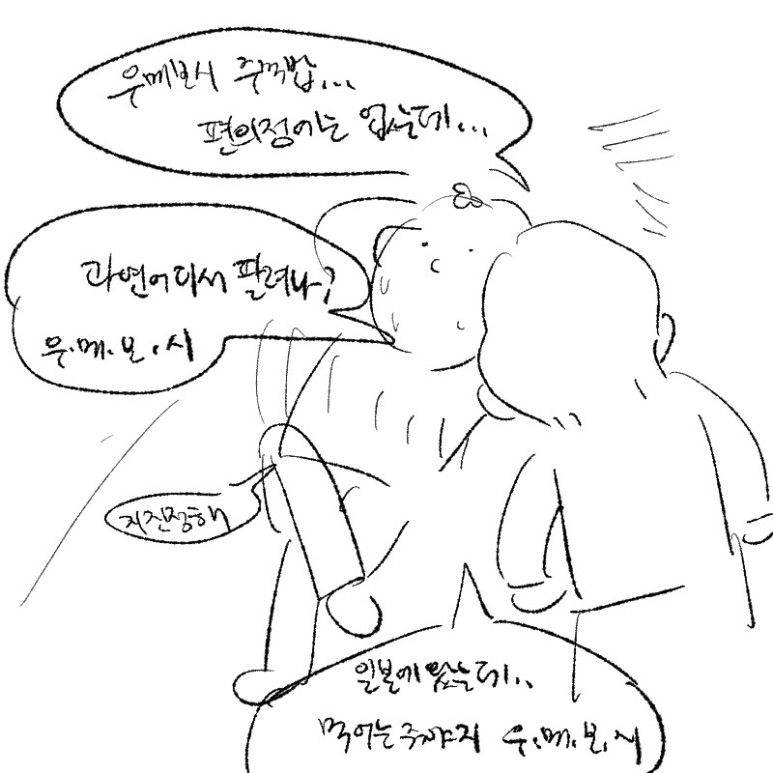 우메보시 주먹밥...
편의점에는 없는데...
과연 어디서 팔려나?
우.메.보.시
지진정해
일본에 왔는데..
먹어는 주야지 우.메.보.시